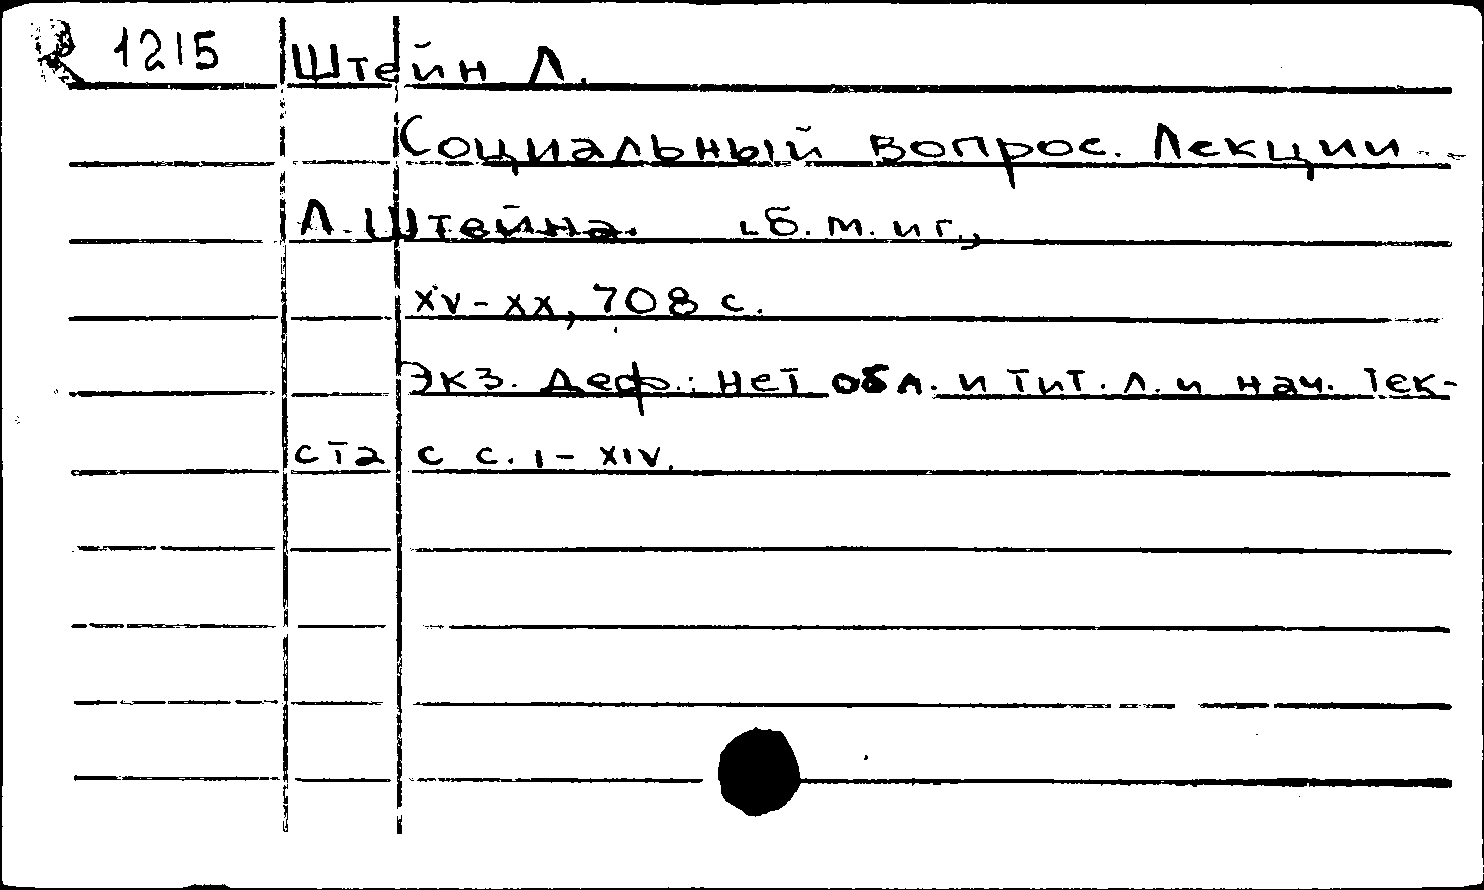 1215 Штейн Л.
Социальный вопрос. Лекции
Л. Штейна. [б. м. и г.]
XV-XX, 708 с.
Экз. деф.: нет обл. и тит. л. и нач. тек-
ста с с. I-XIV.